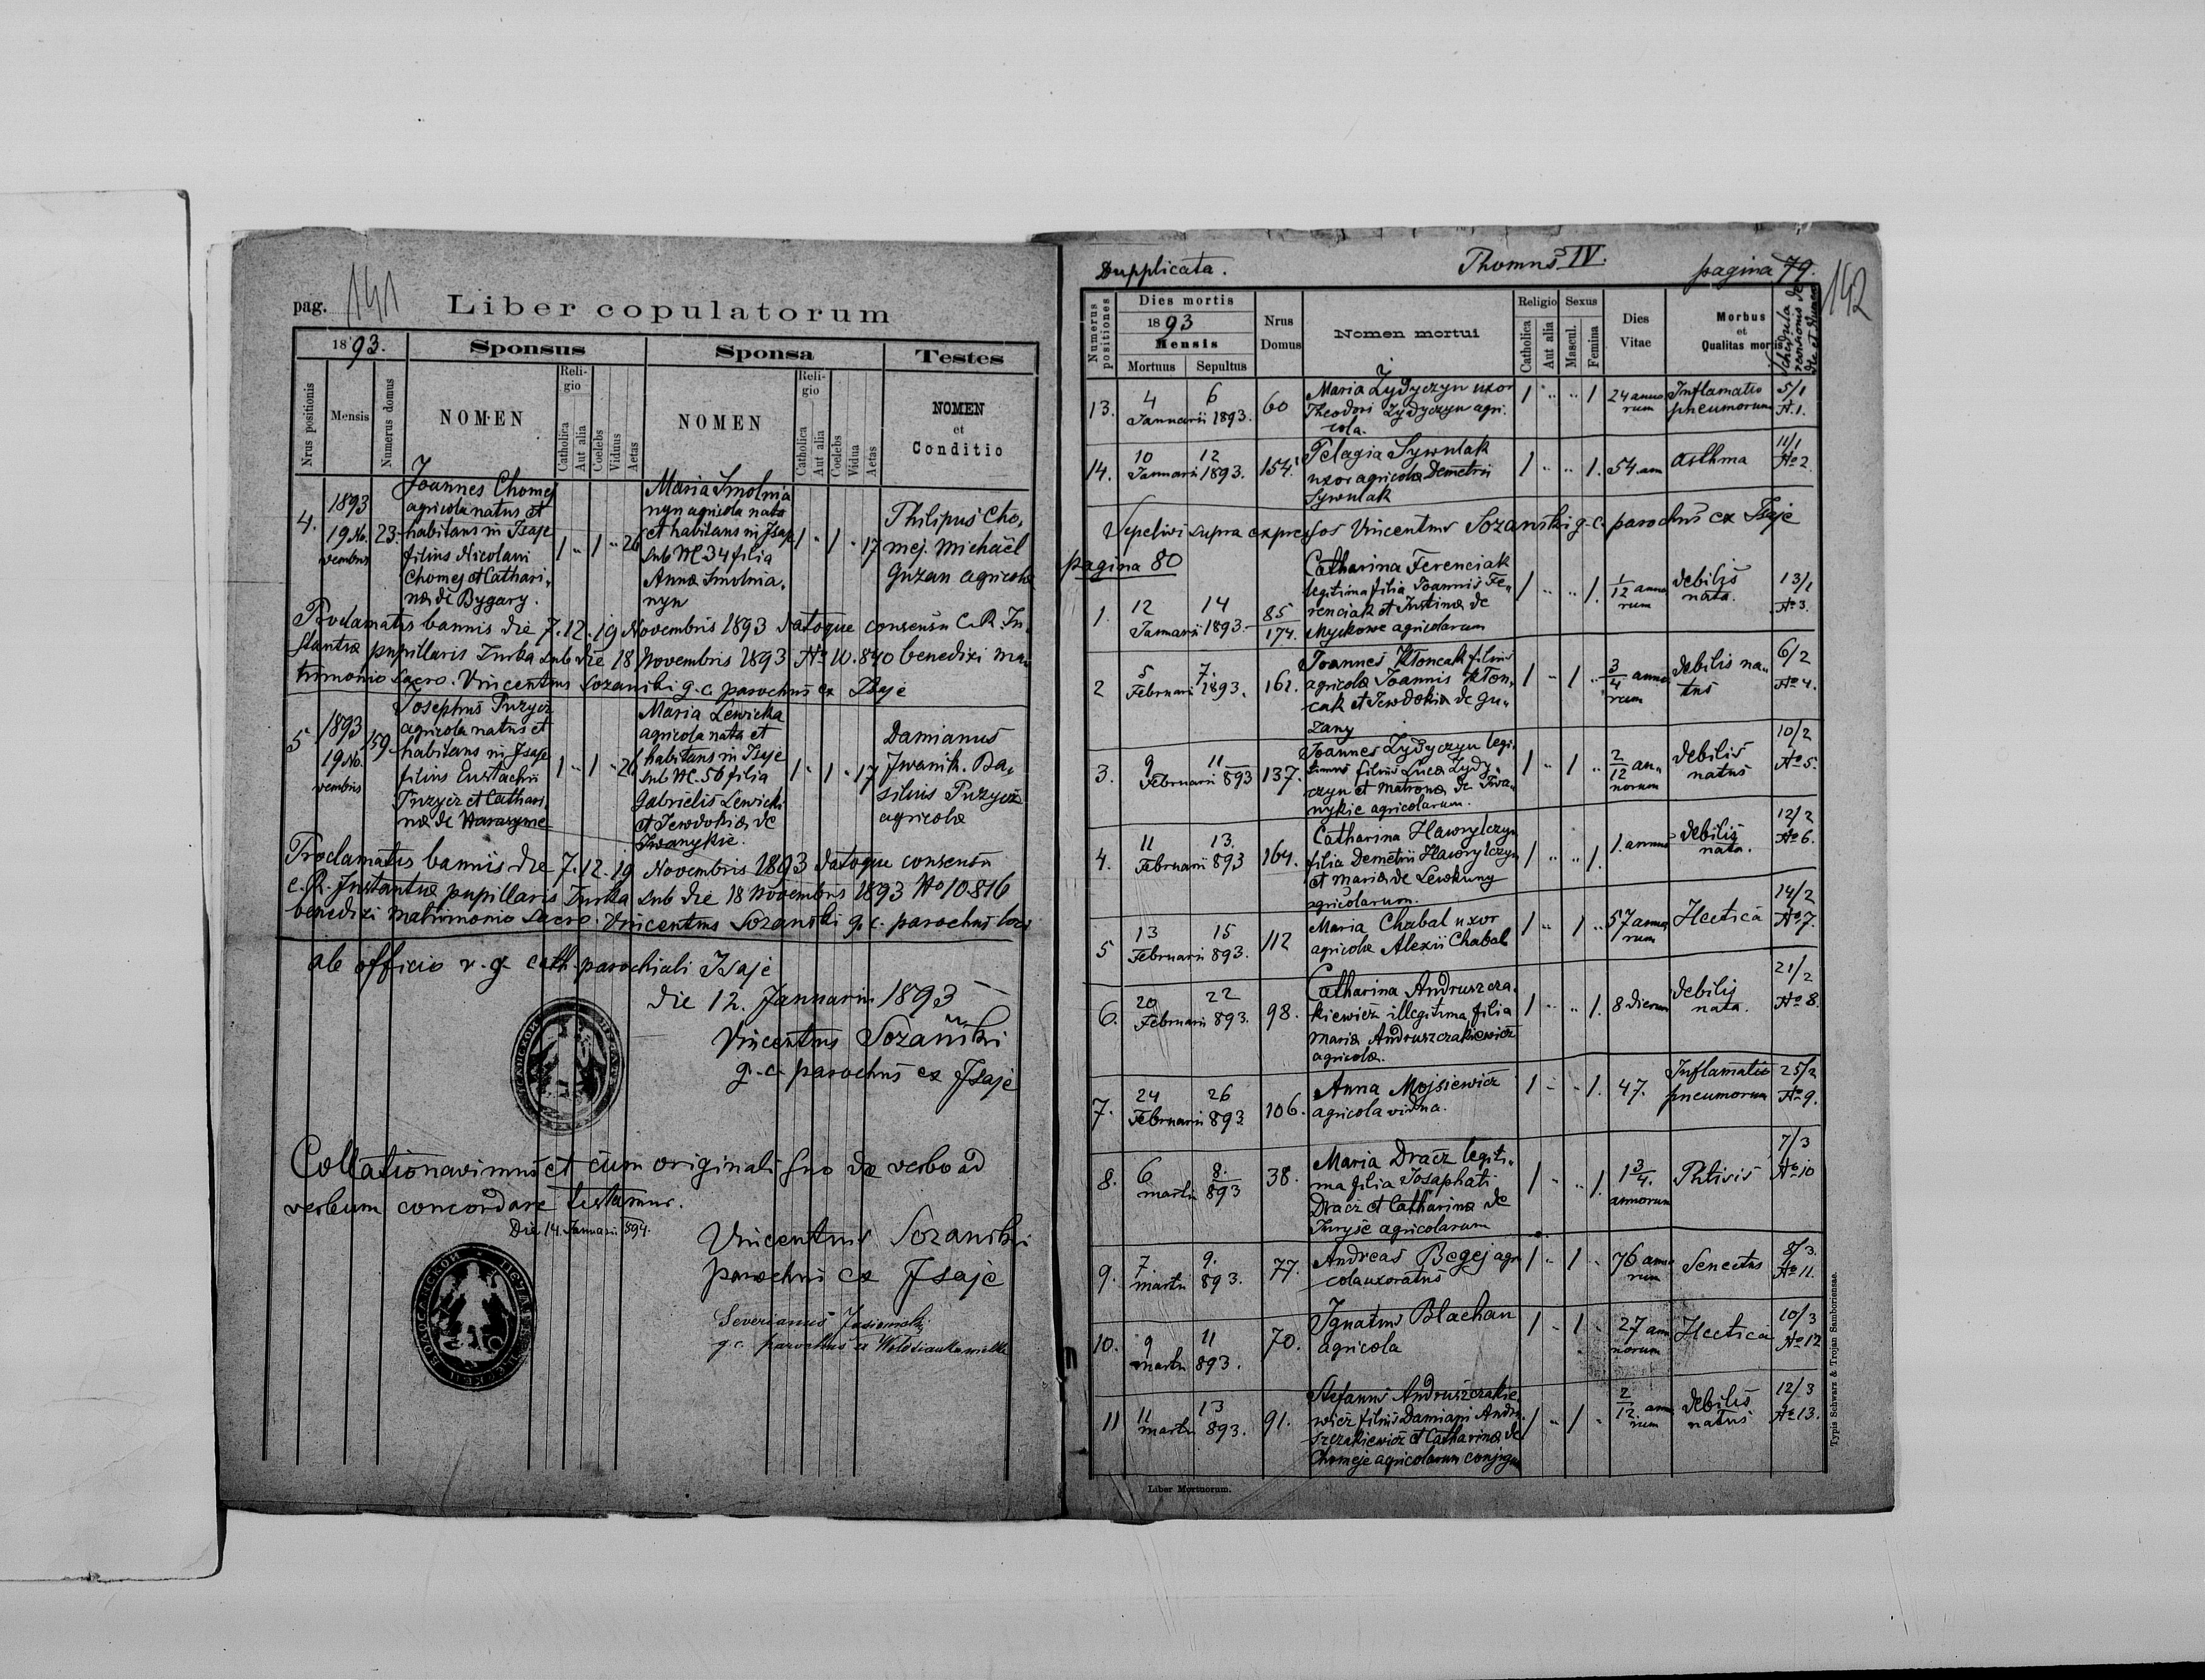 pag. 141 Liber copulatorum
1893. Sponsus Sponsa Testes
Nrus positionis Mensis Numerus domus NOMEN Religio Catholica Aut alia Coelebs Viduus Aetas NOMEN Religio Catholica Aut alia Coelebs Vidua Aetas NOMEN et Conditio
4. 1893 19 No. vembris 23.
Joannes Chomej
agricola natus et
habitans in Isaje
filius Nicolani
Chomej et Cathari„
næ de Bygary.
1 " 1 " 26
Maria Smolnia
nyn agricola nata
et habitans in Isaje
sub N. 34 filia
Annæ Smolnia„
nyn
1 " 1 " 17
Philipus Cho„
mej. Michaël
Guzan agricolæ
Proclamatis bannis die 7. 12. 19 Novembris 1893 datoque consensu C. R. In„
stantiæ pupillaris Turka sub die 18 Novembris 1893 No 10.840 benedixi ma„
trimonio sacro. Vincentius Sozański g. c. parochus ex Isaje
5 1893 19 No. vembris 159
Josephus Puzycz
agricola natus et
habitans in Isaje
filius Eustachii
Puzycz et Cathari„
næ de Harasyme
1 " 1 " 26
Maria Lewicka
agricola nata et
habitans in Isaje
sub N. 56 filia
Gabrielis Lewicki
et Jewdokiæ de
Iwanykie.
1 " 1 " 17
Damianus
Iwanik. Ba„
silius Puzycz
agricolæ
Proclamatis bannis die 7. 12. 19 Novembris 1893 datoque consensu
c. R. Instantiæ pupillaris Turka sub die 18 Novembris 1893 No 10.816
benedixi matrimonio sacro. Vincentius Sozański g. c. parochus loci
ab officio r. g. cath. parochiali Isaje
die 12. Januarii 1893
Vincentius Sozański
g. c. parochus ex Isaje
Collationavimus et cum originali suo de verbo ad
verbum concordare testamur.
Die 14. Januarii 894.
Vincentius Sozański
parochus ex Isaje
Severianus Jasienicki
g. c. parochus ex Wołosianka wielka
Dupplicata. Thomus IV. pagina 79. 142
Numerus positiones Dies mortis 1893 Mensis Mortuus Sepultus Nrus Domus Nomen mortui Religio Catholica Aut alia Sexus Mascul. Femina Dies Vitae Morbus et Qualitas mortis
13. 4 6 Januarii 1893. 60
Maria Zydyczyn uxor
Theodori Zydyczyn agri„
cola.
1 " " 1 24 anno rum Inflamatio pneumorum 5/1 N. 1.
14. 10 12 Januarii 1893. 154.
Pelagia Sywulak
uxor agricolæ Demetrii
Sywulak
1 " " 1. 54. ann asthma 11/1 No 2.
Sepelivi supra expressos Vincentius Sozański g. c. parochus ex Isaje
pagina 80
1. 12 14 Januarii 1893. 85/174.
Catharina Ferenciak
legitima filia Joannis Fe„
renciak et Justinæ de
Myckowe agricolarum
1 " " 1. 1/12 anno rum debilis nata. 13/1 No 3.
2 5 7. Februarii 1893. 161.
Joannes Kłoncak filius
agricolæ Joannis Kłon„
cak et Jewdokiæ de Gu„
zany
1 " 1 " 3/4 anno rum debilis na„ tus 6/2 No 4.
3. 9 11 Februarii 893 137.
Joannes Zydyczyn legi„
timus filius Lucæ Zydy„
czyn et Matronæ de Iwa„
nykie agricolarum.
1 " 1 " 2/12 an„ norum debilis natus 10/2 No 5.
4. 11 13. Februarii 893 164.
Catharina Hawrylczyn
filia Demetrii Hawrylczyn
et Mariæ de Lewkuny
agricolarum.
1 " " 1. 1. annus debilis nata. 12/2 No 6.
5 13 15 Februarii 893. 112
Maria Chabal uxor
agricolæ Alexii Chabal
1 " 1 " 57 anno rum Hectica 14/2 No 7.
6. 20 22 Februarii 893. 98.
Catharina Andruszcza„
kiewicz illegitima filia
Mariæ Andruszczakiewicz
agricolæ.
1 " " 1. 8 dierum debilis nata. 21/2 No 8.
7. 24 26 Februarii 893 106.
Anna Mojsiewicz
agricola vidua.
1 " " 1. 47. Inflamatio pneumorum 25/2 No 9.
8. 6 8. martii 893 38.
Maria Dracz legiti„
ma filia Josaphati
Dracz et Catharinæ de
Juryje agricolarum
1 " " 1. 1 3/4. annorum Phtisis 7/3 No 10
9. 7. 9. martii 893. 77.
Andreas Begej agri
cola uxoratus
1 " 1 " 76 anno rum Senectus 8/3. No 11.
10. 9 11 martii 893. 70.
Ignatius Blachan
agricola
1 " 1 " 27 an norum Hectica 10/3 No 12
11 11 13 martii 893. 91.
Stefanus Andruszczakie„
wicz filius Damiani Andru„
szczakiewicz et Catharinæ de
Chomeje agricolarum conjigum
1 " 1 " 2/12. anno rum debilis natus 12/3 No 13.
Liber Mortuorum.
Typis Schwarz & Trojan Samboriensae.